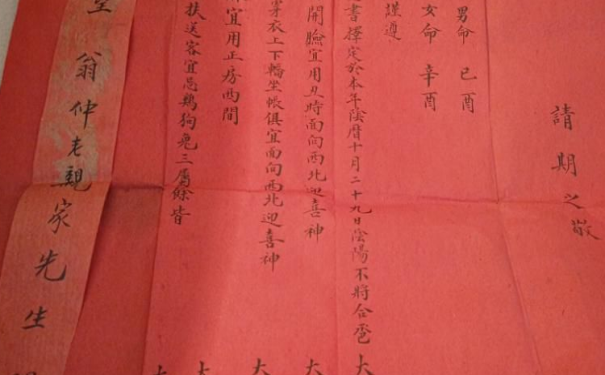 請期之敬
男命 己酉
女命 辛酉
謹遵
書擇定於本年陰曆十月二十九日陰陽不將合卺 大
開臉宜用丑時面向西北迎喜神 大
穿衣上下轎坐帳俱宜面向西北迎喜神 大
宜用正房西間
扶送客宜忌鷄狗兔三屬餘皆 大
翁仲老親家先生